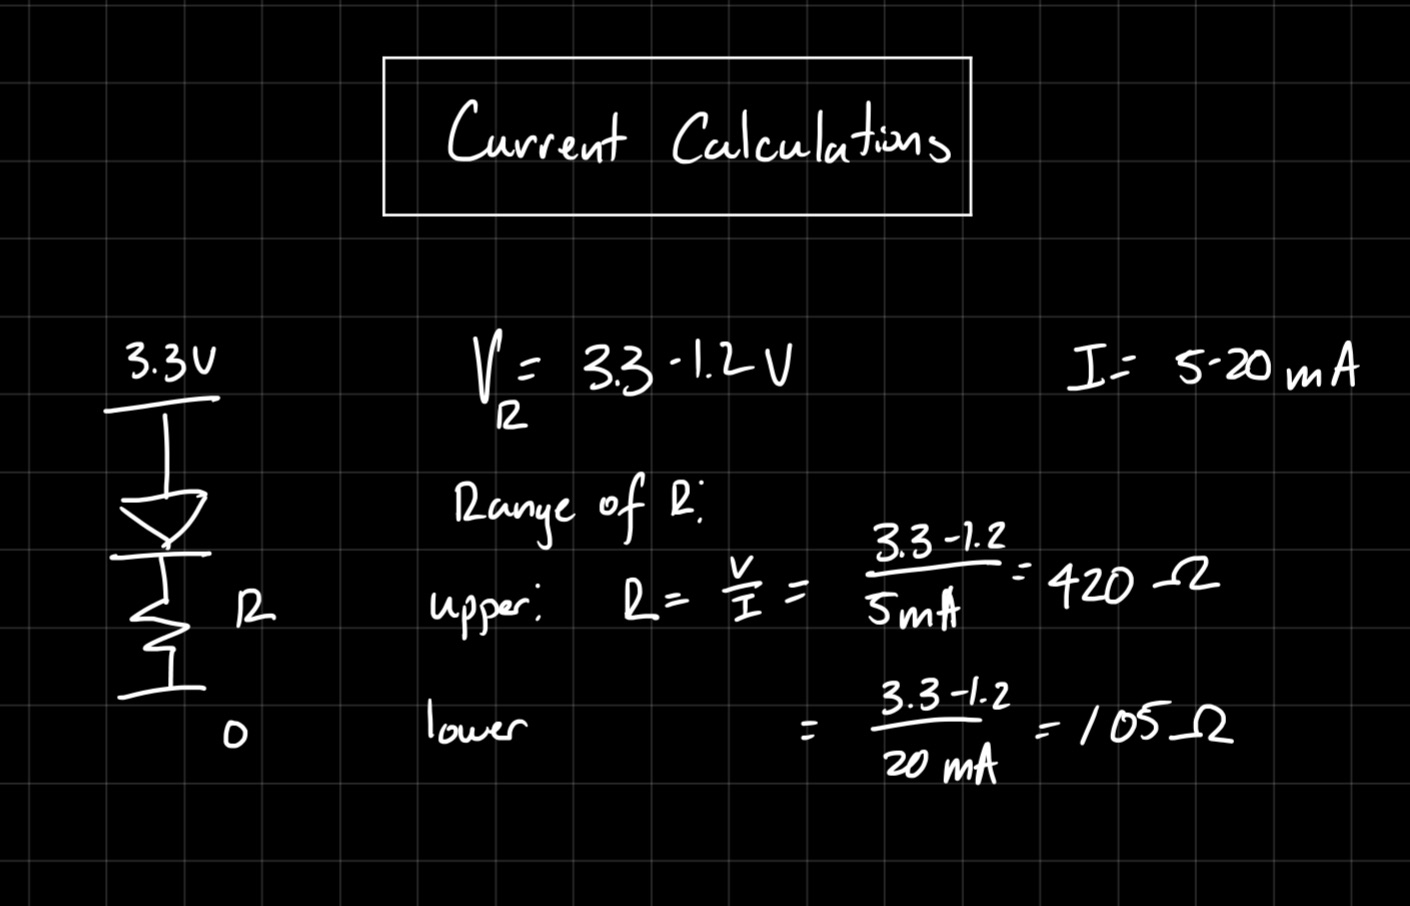 Current Calculations
3.3V
V_R = 3.3 - 1.2 V
I = 5-20 mA
Range of R:
upper: R = V/I = (3.3 - 1.2)/(5 mA) = 420 Ω
R
lower = (3.3 - 1.2)/(20 mA) = 105 Ω
0